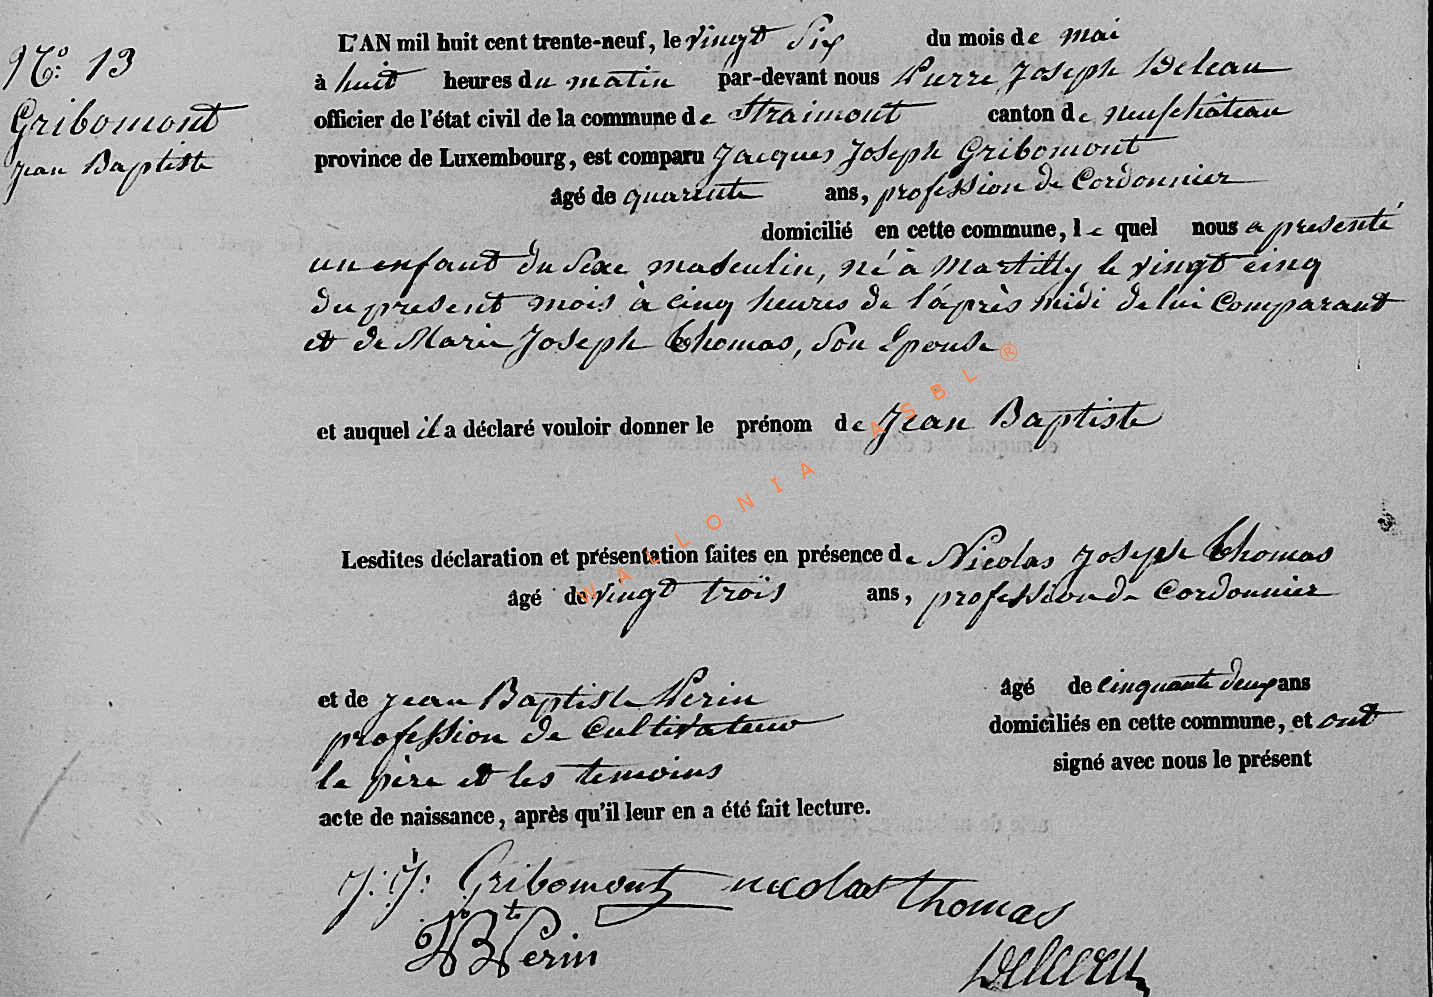 N.º 13
Gribomont
Jean Baptiste
L'AN mil huit cent trente-neuf, le vingt Six du mois de mai
à huit heures du matin par-devant nous Pierre Joseph Deleau
officier de l'état civil de la commune de Straimont canton de neufchâteau
province de Luxembourg, est comparu Jacques Joseph Gribomont
âgé de quarente ans, profession de Cordonnier
domicilié en cette commune, le quel nous a presenté
un enfant du Sexe masculin, né à Martilly le vingt cinq
du present mois à cinq heures de l'après midi de lui Comparant
et de Marie Joseph Thomas, Son Epouse
et auquel il a déclaré vouloir donner le prénom de Jean Baptiste
WALLONIA ASBL ®
Lesdites déclaration et présentation faites en présence de Nicolas Joseph Thomas
âgé de vingt trois ans, profession de Cordonnier
et de Jean Baptiste Perin âgé de cinquante deux ans
profession de Cultivateur domiciliés en cette commune, et ont
le père et les temoins signé avec nous le présent
acte de naissance, après qu'il leur en a été fait lecture.
J: J: Gribomont nicolas Thomas
J Bte Perin
Deleau